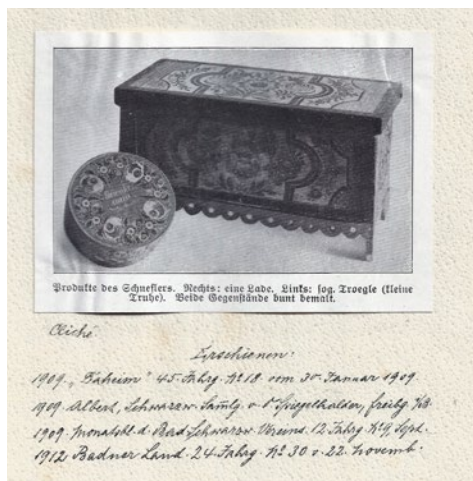 Produkte des Schneflers. Rechts: eine Lade. Links: sog. Troegle (kleine
Truhe). Beide Gegenstände bunt bemalt.
Cliché.
Erschienen:
1909. „Daheim" 45. Jahrg. No 18 vom 30. Januar 1909
1909. Albert, Schwarzw. Samlg. v. Spiegelhalder, freibg. i/B.
1909. Monatsbl. d. Bad. Schwarzw. Vereins. 12. Jahrg. No 9, Sept.
1912 Badner Land. 24. Jahrg. No 30 v. 22. Novemb.